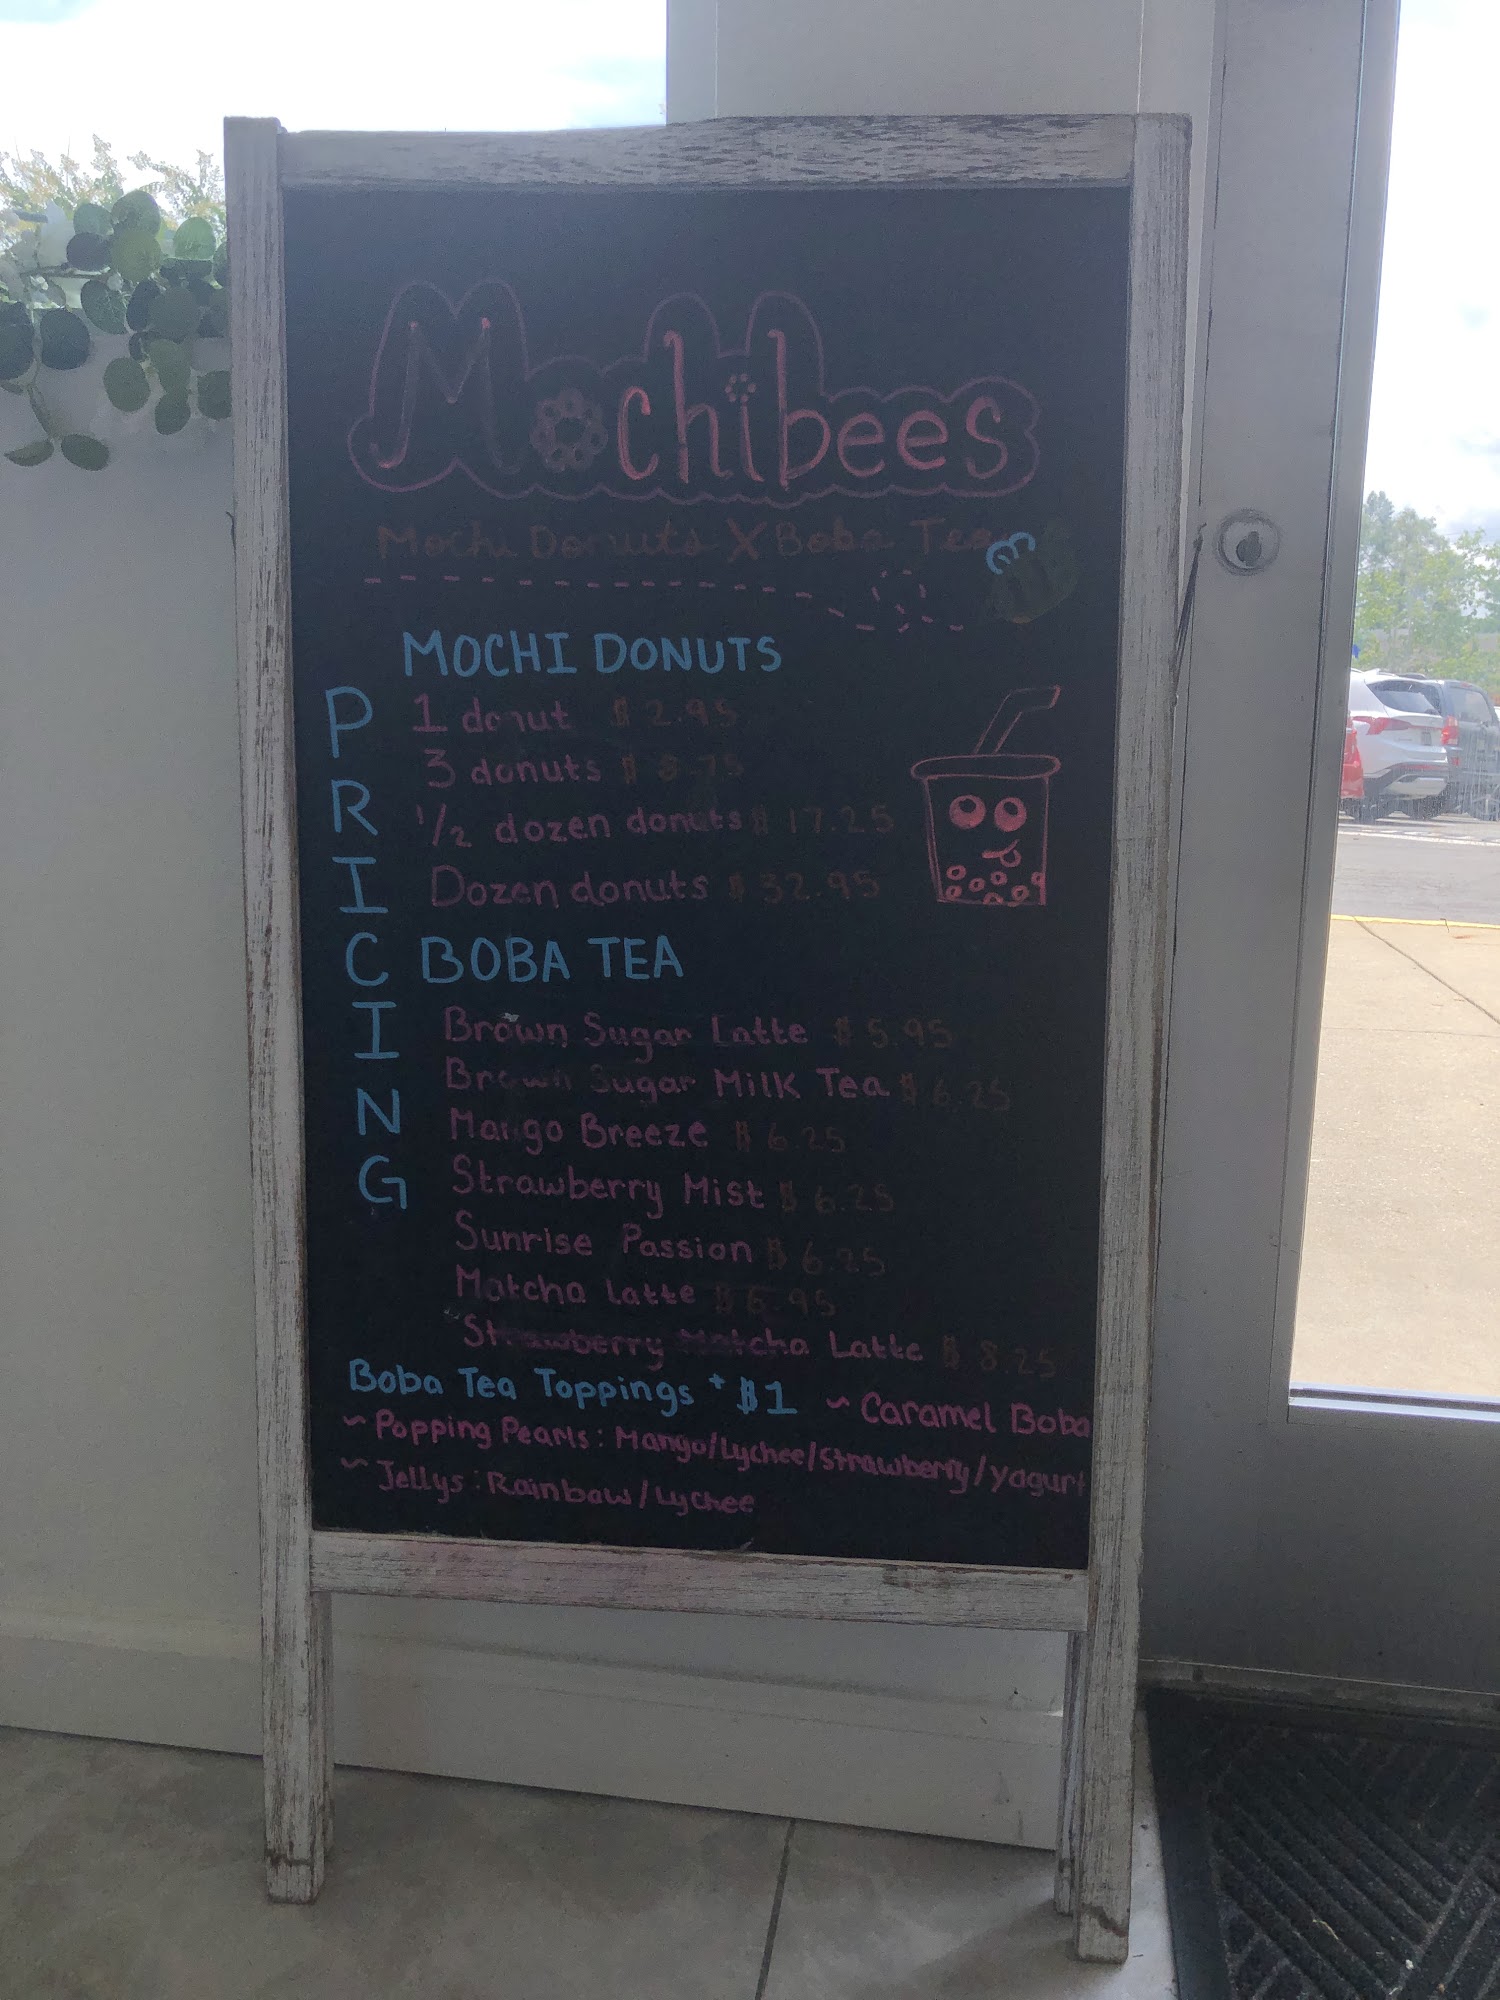 Mochibees
Mochi Donuts X Boba Tea
PRICING
MOCHI DONUTS
1 donut $2.95
3 donuts $8.75
1/2 dozen donuts $17.25
Dozen donuts $32.95
BOBA TEA
Brown Sugar Latte $5.95
Brown Sugar Milk Tea $6.25
Mango Breeze $6.25
Strawberry Mist $6.25
Sunrise Passion $6.25
Matcha Latte $6.95
Strawberry Matcha Latte $8.25
Boba Tea Toppings + $1 ~ Caramel Boba
~ Popping Pearls: Mango/Lychee/Strawberry/Yagurt
~ Jellys: Rainbow/Lychee